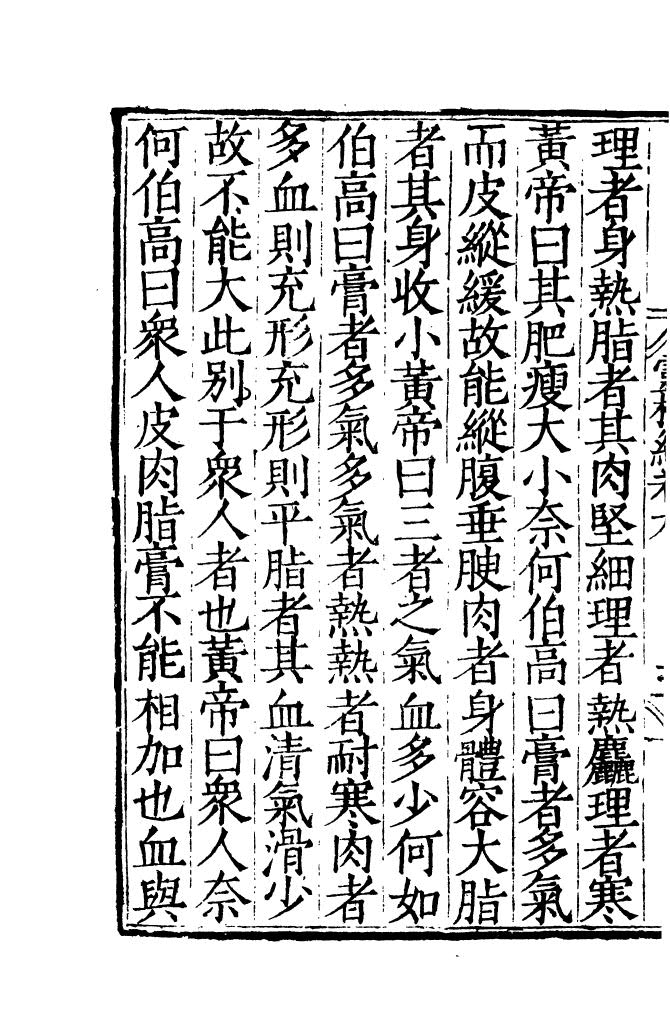 理者身熱脂者其肉堅細理者熱麤理者寒
黃帝曰其肥瘦大小奈何伯高曰膏者多氣
而皮縱緩故能縱腹垂腴肉者身體容大脂
者其身收小黃帝曰三者之氣血多少何如
伯高曰膏者多氣多氣者熱熱者耐寒肉者
多血則充形充形則平脂者其血清氣滑少
故不能大此別于衆人者也黃帝曰衆人奈
何伯高曰衆人皮肉脂膏不能相加也血與